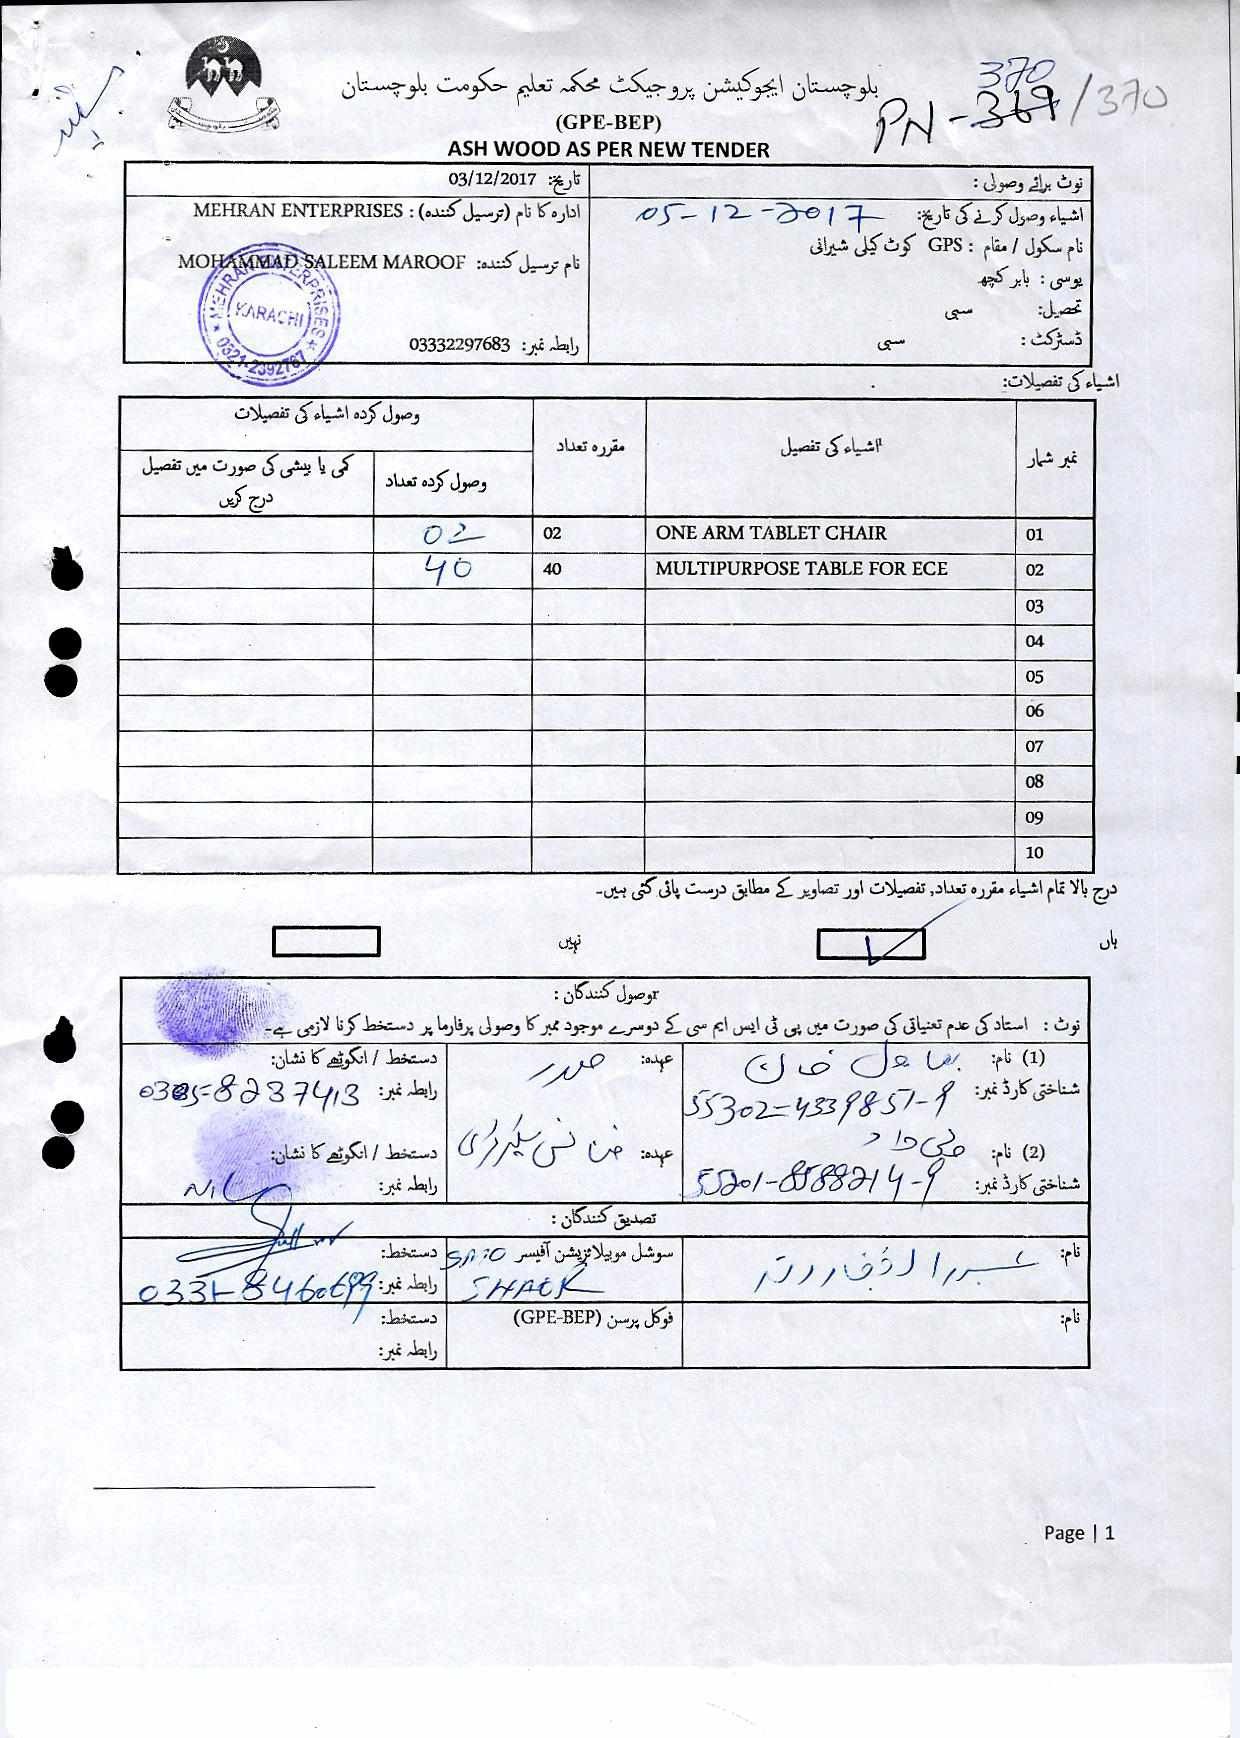 بلوچستان ایجوکیشن پروجیکٹ محکمہ تعلیم حکومت بلوچستان
370
PN-369/370
(GPE-BEP)
ASH WOOD AS PER NEW TENDER
نوٹ برائے وصولی :
تاریخ: 03/12/2017
اشیاء وصول کرنے کی تاریخ: 05-12-2017
ادارہ کا نام (ترسیل کنندہ) : MEHRAN ENTERPRISES
نام سکول / مقام : GPS کوٹ کیلی شیرانی
نام ترسیل کنندہ: MOHAMMAD SALEEM MAROOF
یوسی : بابر کچھ
تحصیل: سبی
ڈسٹرکٹ : سبی
رابطہ نمبر: 03332297683
MEHRAN ENTERPRISES
KARACHI
0321-2392767
اشیاء کی تفصیلات:
نمبر شمار
اشیاء کی تفصیل
مقررہ تعداد
وصول کردہ اشیاء کی تفصیلات
وصول کردہ تعداد
کمی یا بیشی کی صورت میں تفصیل درج کریں
01 ONE ARM TABLET CHAIR 02 02
02 MULTIPURPOSE TABLE FOR ECE 40 40
03
04
05
06
07
08
09
10
درج بالا تمام اشیاء مقررہ تعداد, تفصیلات اور تصاویر کے مطابق درست پائی گئی ہیں۔
ہاں
نہیں
وصول کنندگان :
نوٹ : استاد کی عدم تعنیاتی کی صورت میں پی ٹی ایس ایم سی کے دوسرے موجود ممبر کا وصولی پرفارما پر دستخط کرنا لازمی ہے۔
(1) نام: بہاول خان
عہدہ: صدر
دستخط / انگوٹھے کا نشان:
شناختی کارڈ نمبر: 55302-4339857-9
رابطہ نمبر: 0335-8237413
(2) نام:
عہدہ: فنانس سیکرٹری
دستخط / انگوٹھے کا نشان:
شناختی کارڈ نمبر: 55201-8588214-9
رابطہ نمبر: NIL
تصدیق کنندگان :
نام:
سوشل موبیلائزیشن آفیسر SMO
دستخط:
رابطہ نمبر:
نام:
فوکل پرسن (GPE-BEP)
دستخط:
رابطہ نمبر:
Page | 1